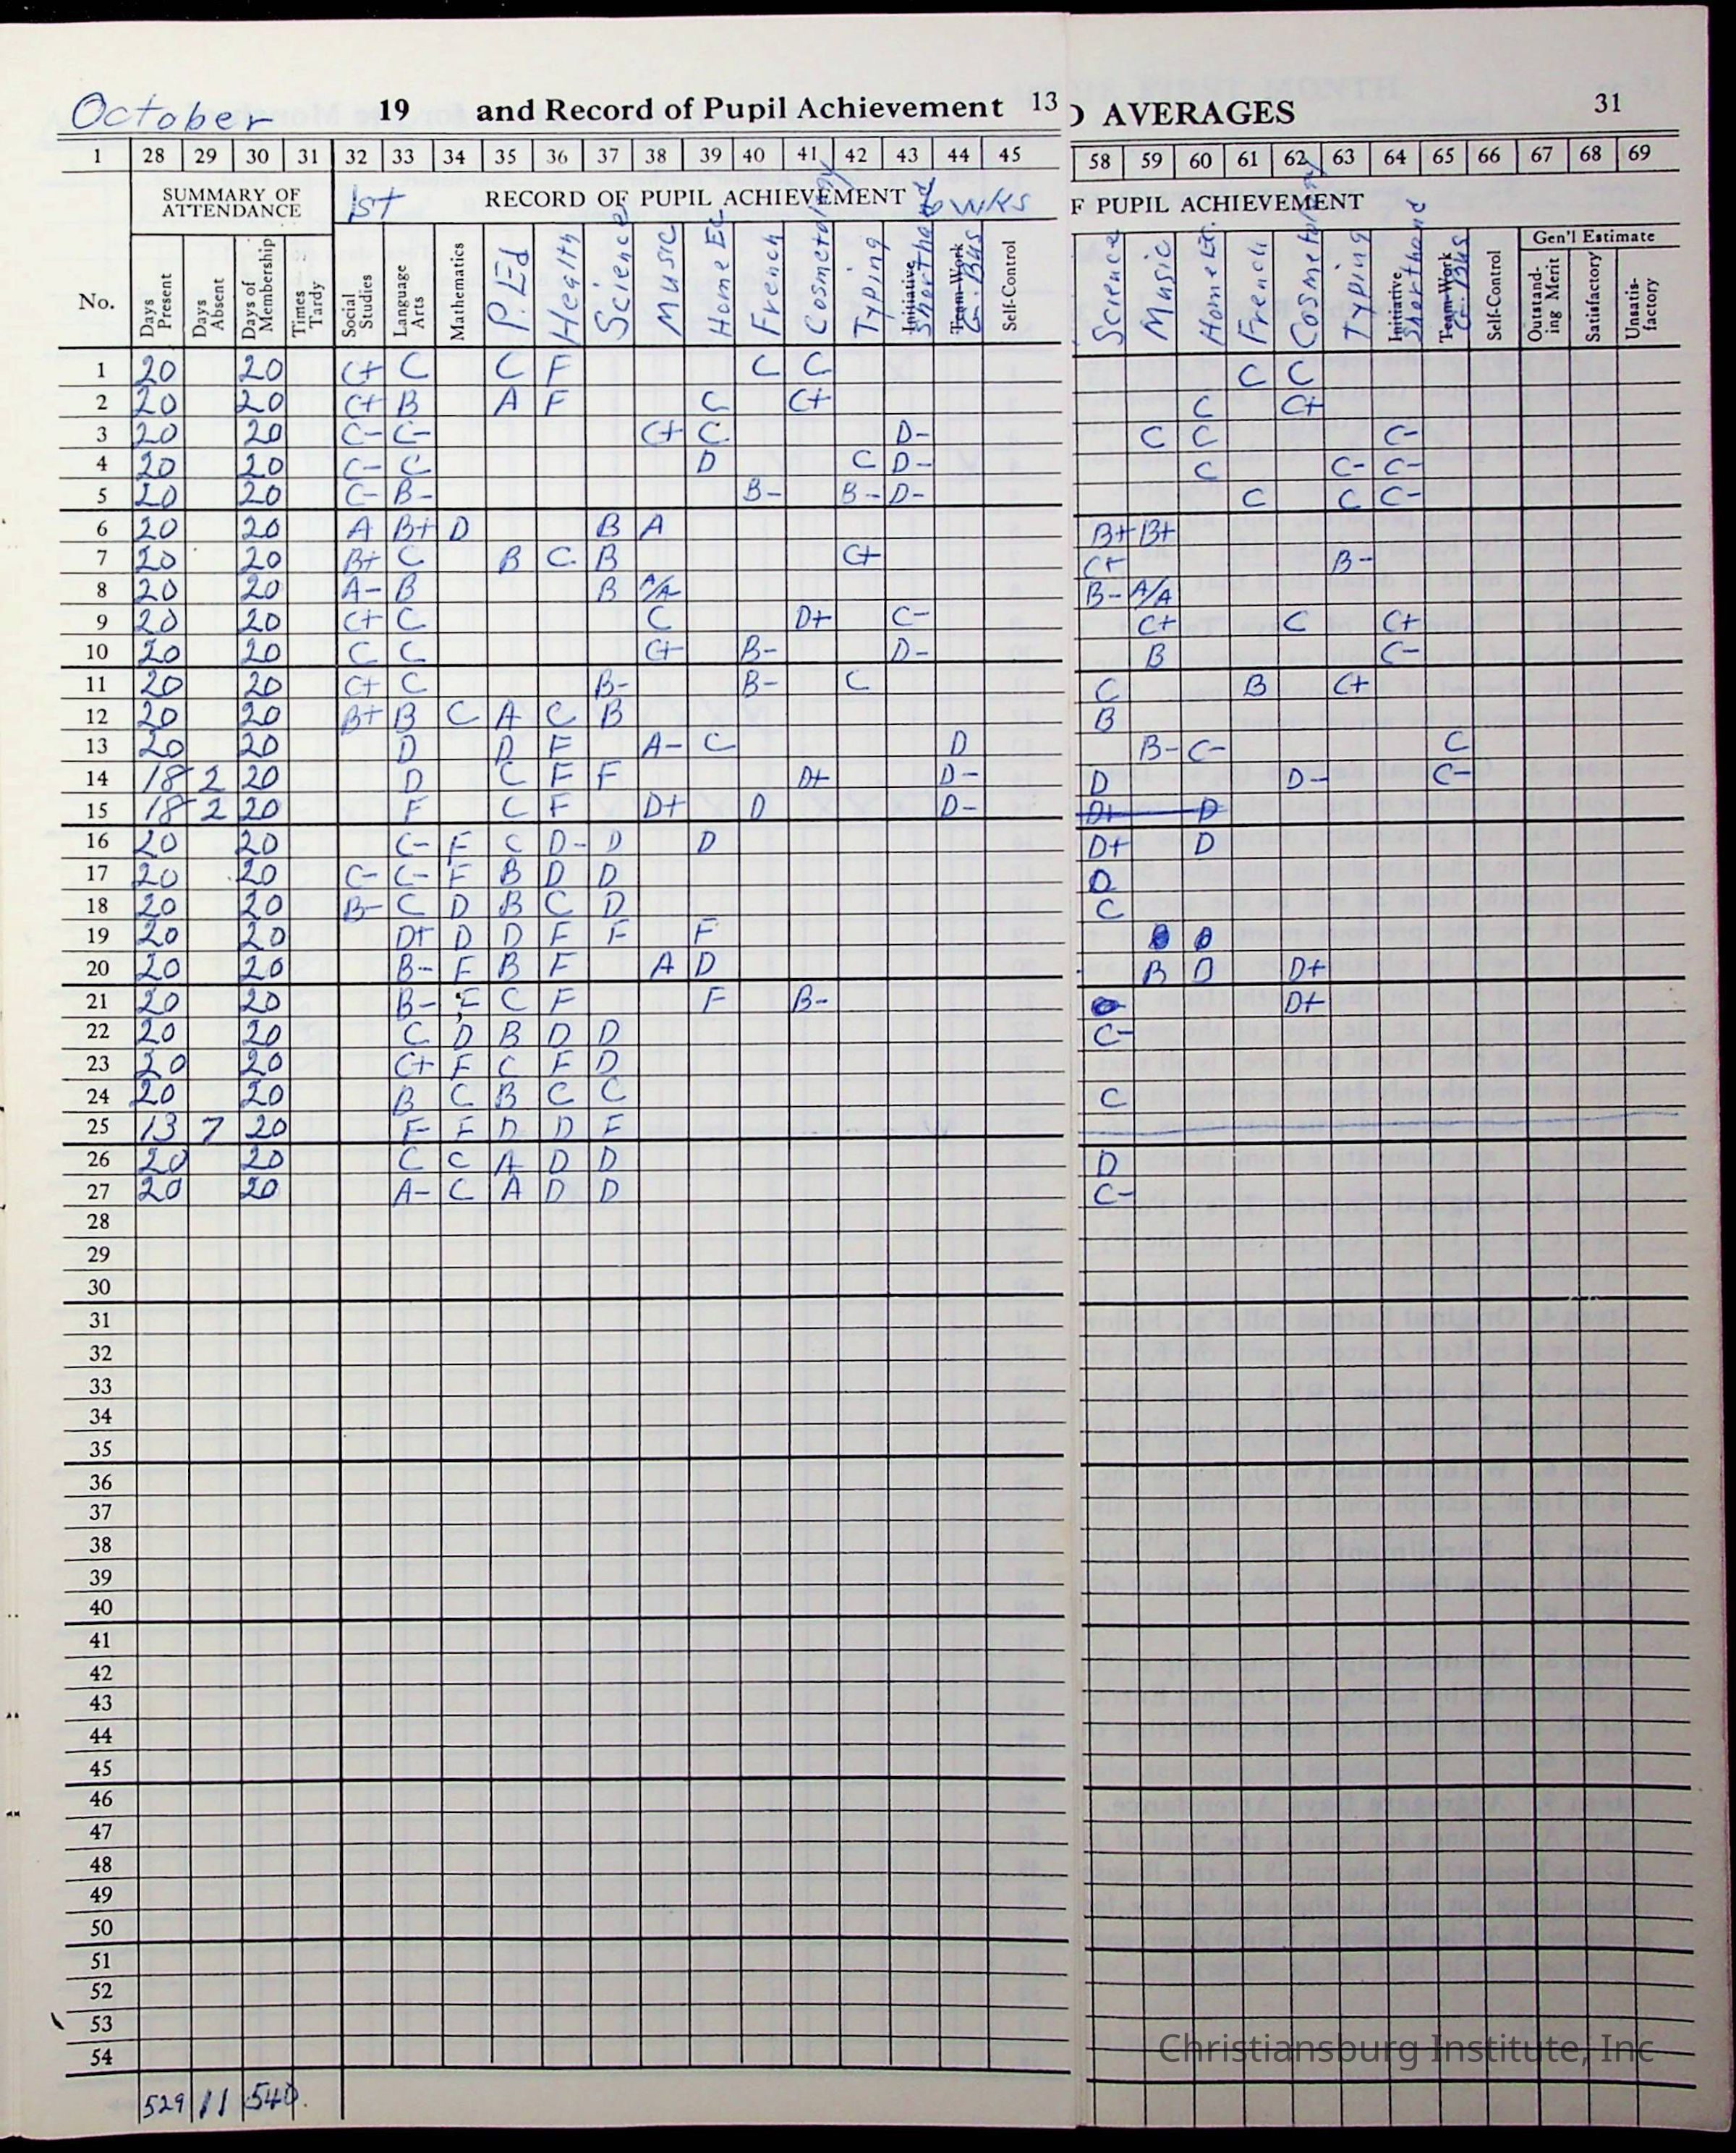 October 19 and Record of Pupil Achievement 13
1 28 29 30 31 32 33 34 35 36 37 38 39 40 41 42 43 44 45
SUMMARY OF ATTENDANCE 1st RECORD OF PUPIL ACHIEVEMENT 6 wks
No. Days Present Days Absent Days of Membership Times Tardy Social Studies Language Arts Mathematics P.Ed Health Science Music Home Ec French Cosmetology Typing Initiative Shorthand Team-Work G. Bus Self-Control
1 20 20 C+ C C F C C
2 20 20 C+ B A F C C+
3 20 20 C- C- C+ C D-
4 20 20 C- C D C D-
5 20 20 C- B- B- B- D-
6 20 20 A B+ D B A
7 20 20 B+ C B C B C+
8 20 20 A- B B A/A
9 20 20 C+ C C D+ C-
10 20 20 C C C+ B- D-
11 20 20 C+ C B- B- C
12 20 20 B+ B C A C B
13 20 20 D D F A- C D
14 18 2 20 D C F F D+ D-
15 18 2 20 F C F D+ D D-
16 20 20 C- F C D- D D
17 20 20 C- C- F B D D
18 20 20 B- C D B C D
19 20 20 D+ D D F F F
20 20 20 B- F B F A D
21 20 20 B- F C F F B-
22 20 20 C D B D D
23 20 20 C+ F C F D
24 20 20 B C B C C
25 13 7 20 F F D D F
26 20 20 C C A D D
27 20 20 A- C A D D
28
29
30
31
32
33
34
35
36
37
38
39
40
41
42
43
44
45
46
47
48
49
50
51
52
53
54
529 11 540
AVERAGES 31
58 59 60 61 62 63 64 65 66 67 68 69
F PUPIL ACHIEVEMENT
Gen'l Estimate
Science Music Home Ec. French Cosmetology Typing Initiative Shorthand Team-Work G. Bus Self-Control Outstanding Merit Satisfactory Unsatisfactory
C C
C C+
C C C-
C C- C-
C C C-
B+ B+
C+ B-
B- A/A
C+ C C+
B C-
C B C+
B
B- C- C
D D- C-
D+ D
D+ D
D
C
B D D+
D+
C-
C
D
C-
Christiansburg Institute, Inc